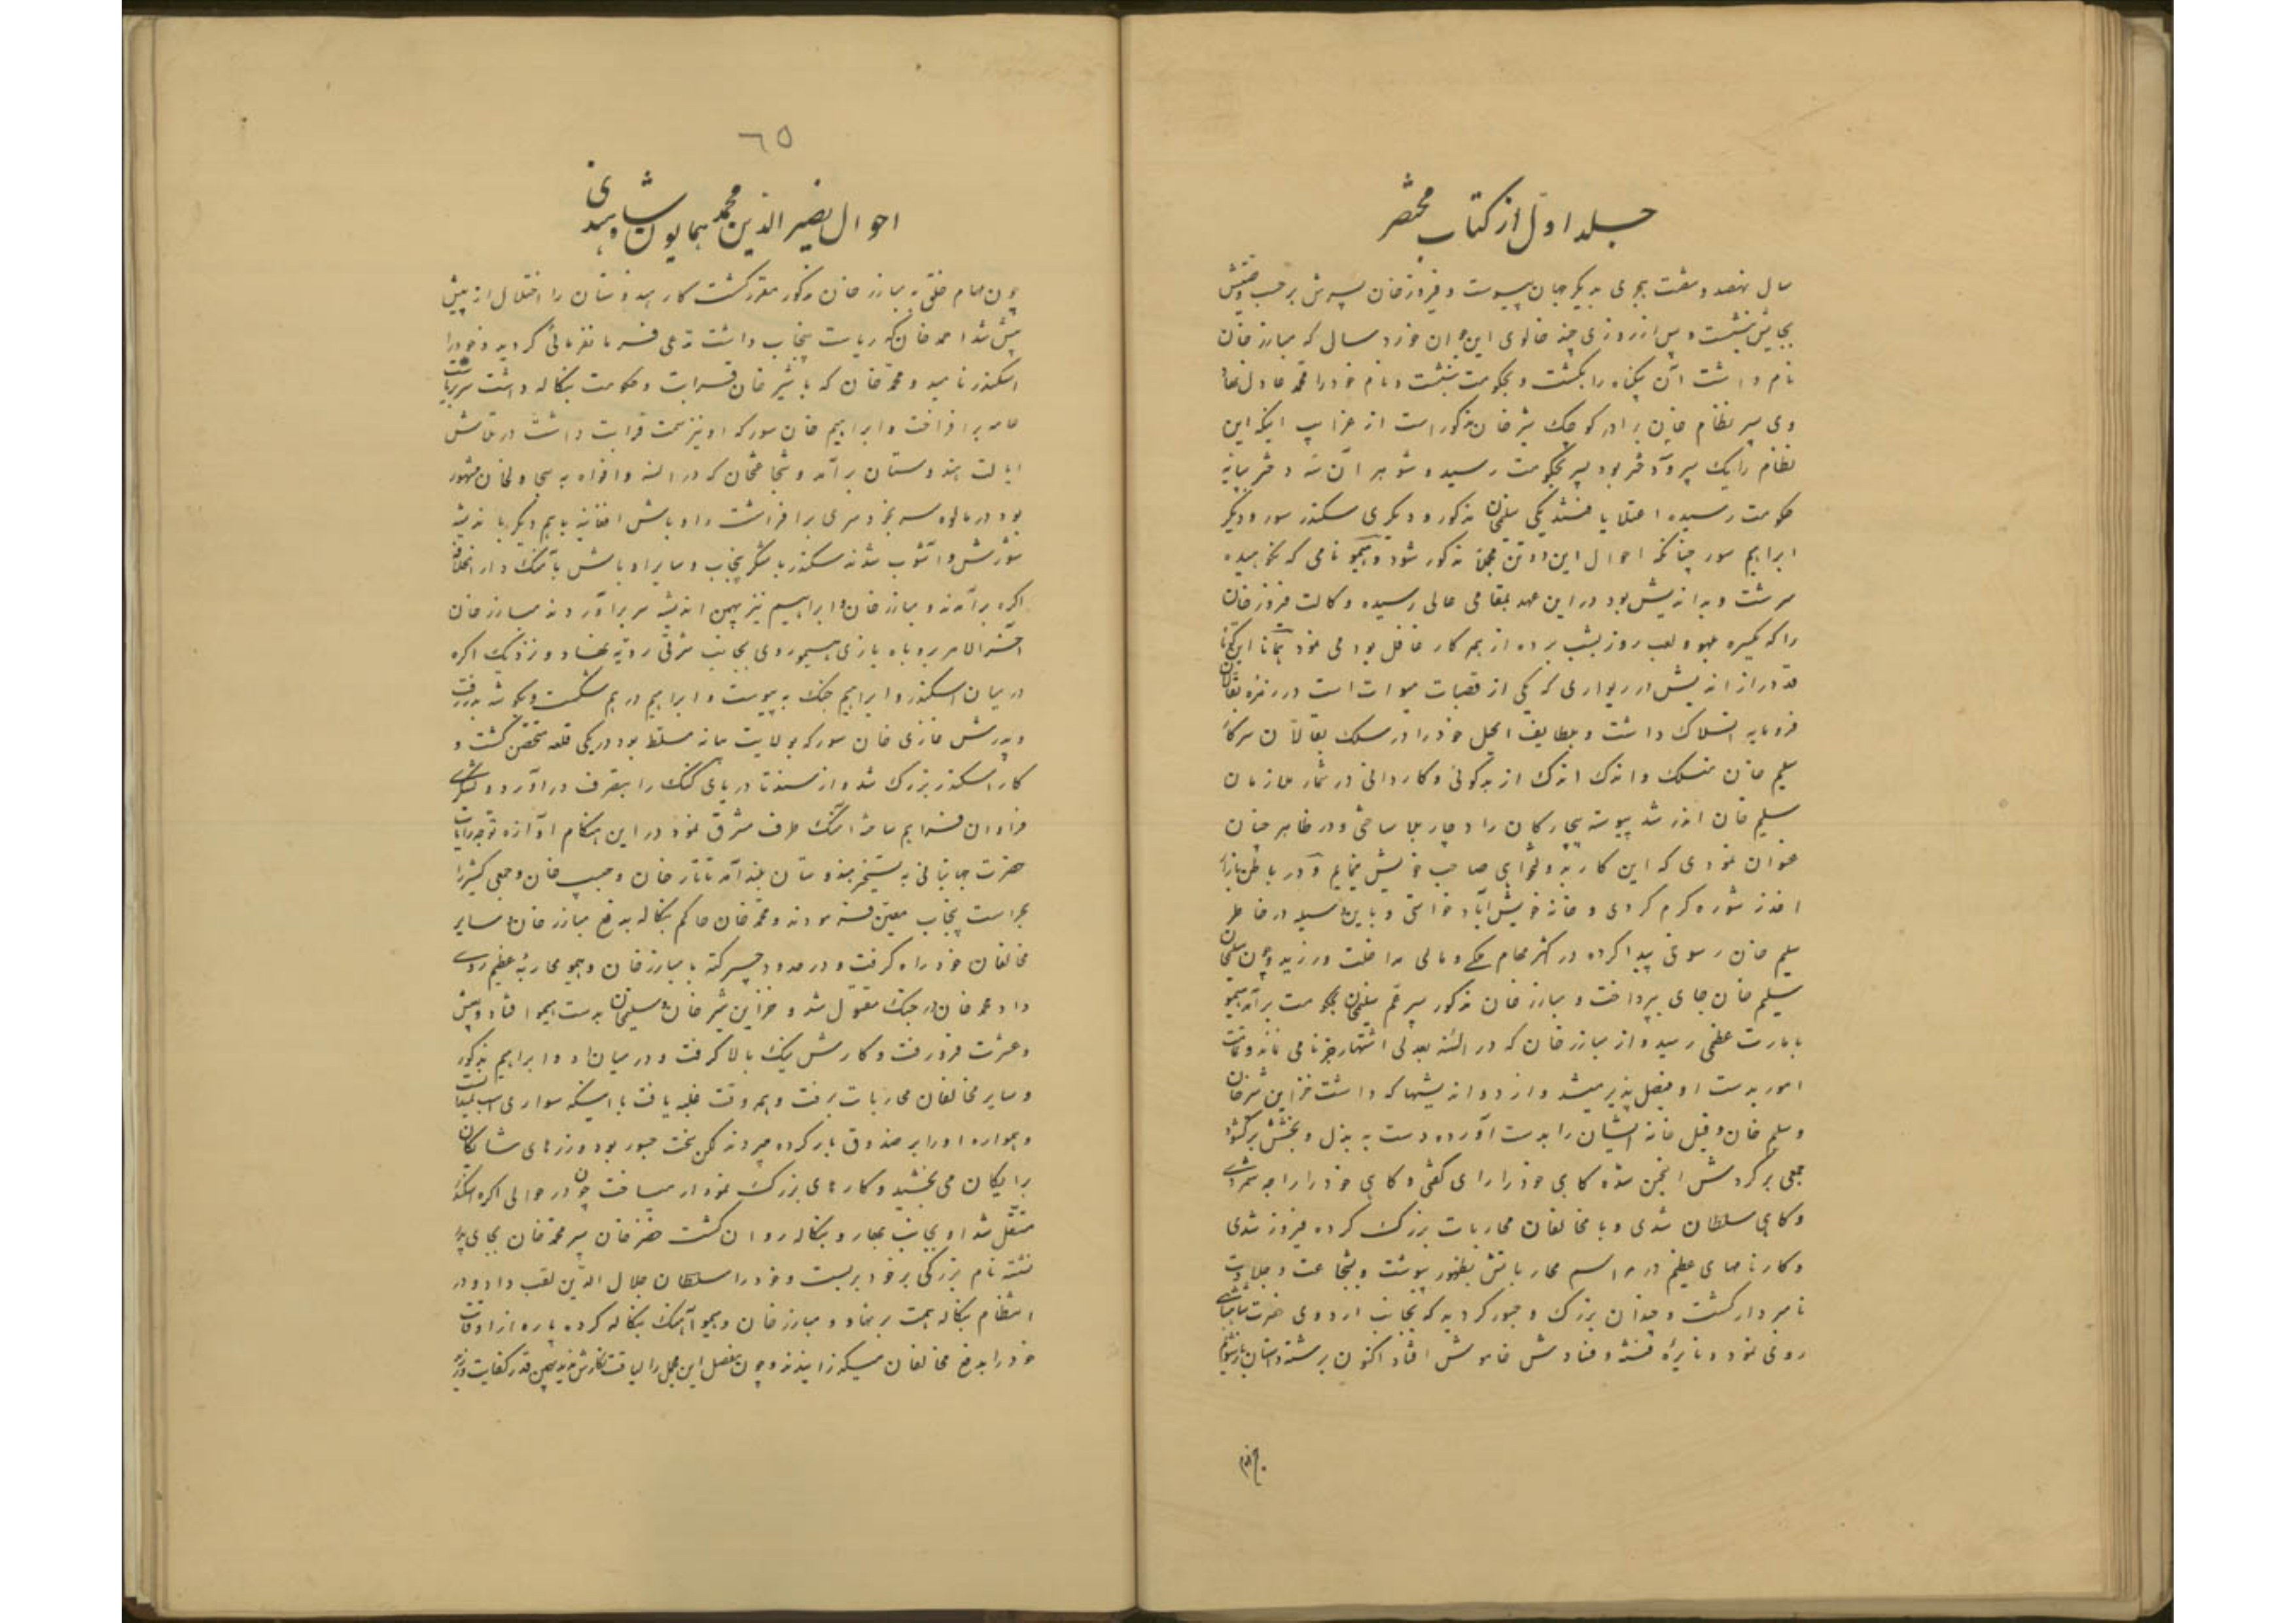 جلد اول از کتاب مختصر
سال نهصد و شصت هجری به دیگر جهان پیوست و فیروز خان پسرش بر حسب وصیتش
بجایش نشست و پس از روزی چند خالوی این جوان خورد سال که مبارز خان
نام داشت آن بیگناه را بکشت و بحکومت بنشست و نام خود را محمد عادل نهاد
وی پسر نظام خان برادر کوچک شیر خان مذکور است از غرایب اینکه این
نظام را یک پسر و سه دختر بود پسر بحکومت رسید و شوهر آن سه دختر بپایه
حکومت رسیده اعتلا یافتند یکی سلیمان مذکور و دیگری سکندر سور و دیگر
ابراهیم سور چنانکه احوال این دو تن مجملا مذکور شود و هیمو نامی که نکوهیده
سرشت و بد اندیش بود در این عهد بمقامی عالی رسیده وکالت فیروز خان
را که یکسره بلهو و لعب روز بشب برده از همه کار غافل بود می نمود همانا این کوتاه
قد دراز اندیش در ریواری که یکی از قصبات میوات است در زمره بقالان
فرومایه انسلاک داشت و بلطایف الحیل خود را در سلک بقالان سرکار
سلیم خان منسلک و اندک اندک از بدگوئی و کاردانی در شمار ملازمان
سلیم خان اندر شد پیوسته بیچارگان را دچار بلا ساختی و در ظاهر چنان
عنوان نمودی که این کار بدولتخواهی صاحب خویش نمایم و در باطن بازار
اخذ و شوره گرم کردی و خانه خویش آباد خواستی و باین وسیله در خاطر
سلیم خان رسوخی پیدا کرده در اکثر مهام ملکی و مالی مداخلت ورزید و چون سلیمان
سلیم خان جای بپرداخت و مبارز خان مذکور پسر عم سلیمان بحکومت برآمد هیمو
بامارت عظمی رسید و از مبارز خان که در السنه بعدلی اشتهار جز نامی نماند و تمامت
امور بدست او فیصل پذیر میشد و از دو اندیشیها که داشت خزاین شیرخان
و سلیم خان و فیل خانه ایشان را بدست آورده دست به بذل و بخشش برگشود
جمعی بر گردش انجمن شده گاهی خود را رای گفتی و گاهی خود را راجه شمردی
و گاهی سلطان شدی و با مخالفان محاربات بزرگ کرده فیروز شدی
و کارنامهای عظیم در مراسم محارباتش بظهور پیوست و بشجاعت و جلادت
نامبردار گشت و چندان بزرگ و جسور گردید که بجانب اردوی حضرت شاهنشاهی
روی نمود و نایره فتنه و فسادش خاموش افتاد اکنون بر سر داستان باز شویم
٦٥
احوال نصیر الدین محمد همایون شاه هندی
چون مهام خلق به مبارز خان مذکور مقرر گشت کار هندوستان را اختلال از پیش
بیش شد احمد خان که ریاست پنجاب داشت مدعی فرمانفرمائی گردید و خود را
اسکندر نامید و محمد خان که با شیر خان قرابت و حکومت بنگاله داشت سر بریاست
عامه برافراخت و ابراهیم خان سور که او نیز سمت قرابت داشت در تلاش
ایالت هندوستان برآمد و شجاعتخان که در السنه و افواه به سجاولخان مشهور
بود در مالوه سر بخود سری برافراشت و اوباش افاغنه باهم دیگر باندیشه
شورش و آشوب شدند سکندر با لشکر پنجاب و سایر اوباش بآهنگ دار الخلافه
اگره برآمدند و مبارز خان و ابراهیم نیز بهمین اندیشه سر برآوردند مبارز خان
آخر الامر بروباه بازی هیمو روی بجانب شرقی رویه نهاد و نزدیک اگره
در میان اسکندر و ابراهیم جنگ به پیوست و ابراهیم درهم شکست و بگوشه بدر رفت
و پدرش غازی خان سور که بولایت بیانه مسلط بود در یکی قلعه متحصن گشت و
کار اسکندر بزرگ شد و از سند تا دریای گنگ را بتصرف درآورد و لشکری
فراوان فراهم ساخته آهنگ طرف مشرق نمود در این هنگام آوازه توجه رایات
حضرت جهانبانی به تسخیر هندوستان بلند آمد تاتار خان و حبیب خان و جمعی کثیر را
بحراست پنجاب معین فرمودند و محمد خان حاکم بنگاله بدفع مبارز خان و سایر
مخالفان خود راه گرفت و در حدود چپر کته با مبارز خان و هیمو محاربه عظیم روی
داد محمد خان در جنگ مقتول شد و خزاین شیر خان و سلیمان بدست هیمو افتاد و بعیش
و عشرت فرو رفت و کارش نیک بالا گرفت و در میان او و ابراهیم مذکور
و سایر مخالفان محاربات برفت و همه وقت غلبه یافت با اینکه سواری اسب نمیدانست
و همواره او را بر صندوق بار کرده میبردند لکن سخت جسور بود و زرهای شایگان
برایگان می بخشید و کارهای بزرگ نمودار میساخت چون در حوالی اگره اسکندر
مستقل شد او بجانب بهار و بنگاله روان گشت خضر خان پسر محمد خان بجای پدر
نشسته نام بزرگی بر خود بربست و خود را سلطان جلال الدین لقب داد و در
انتظام بنگاله همت برنهاد و مبارز خان و هیمو آهنگ بنگاله کرده پاره از اوقات
خود را بدفع مخالفان میگذرانیدند و چون مفصل این مجمل را لیاقت نگارش ندید بهمین قدر کفایت ورزید